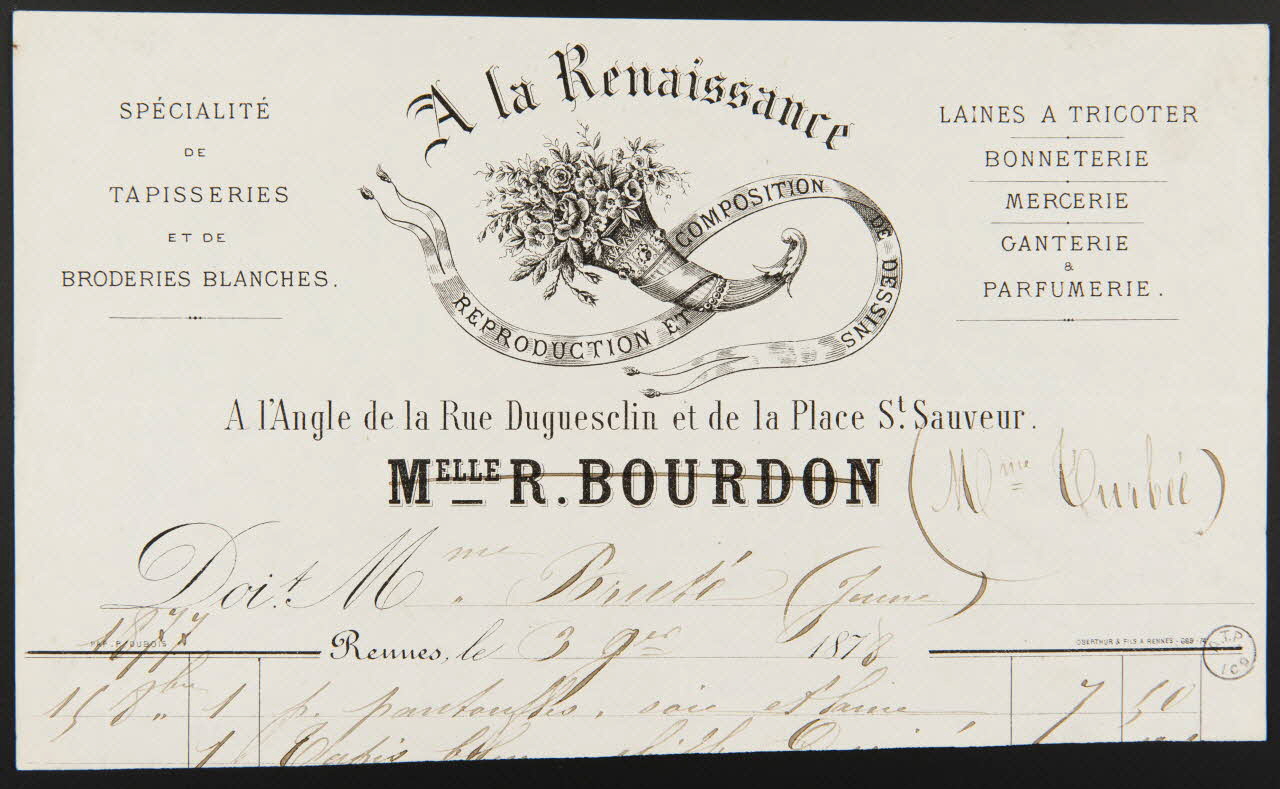 A la Renaissance
SPÉCIALITÉ
DE
TAPISSERIES
ET DE
BRODERIES BLANCHES.
REPRODUCTION ET COMPOSITION DE DESSINS
LAINES A TRICOTER
BONNETERIE
MERCERIE
GANTERIE
&
PARFUMERIE.
A l'Angle de la Rue Duguesclin et de la Place St. Sauveur.
MELLE R. BOURDON (Mme
Doit Mme (Jeune)
1877
Rennes, le 3 9er 1878
OBERTHUR & FILS A RENNES
15 8bre 1 p. pantouffles, soie et laine 7 50
1 Tapis